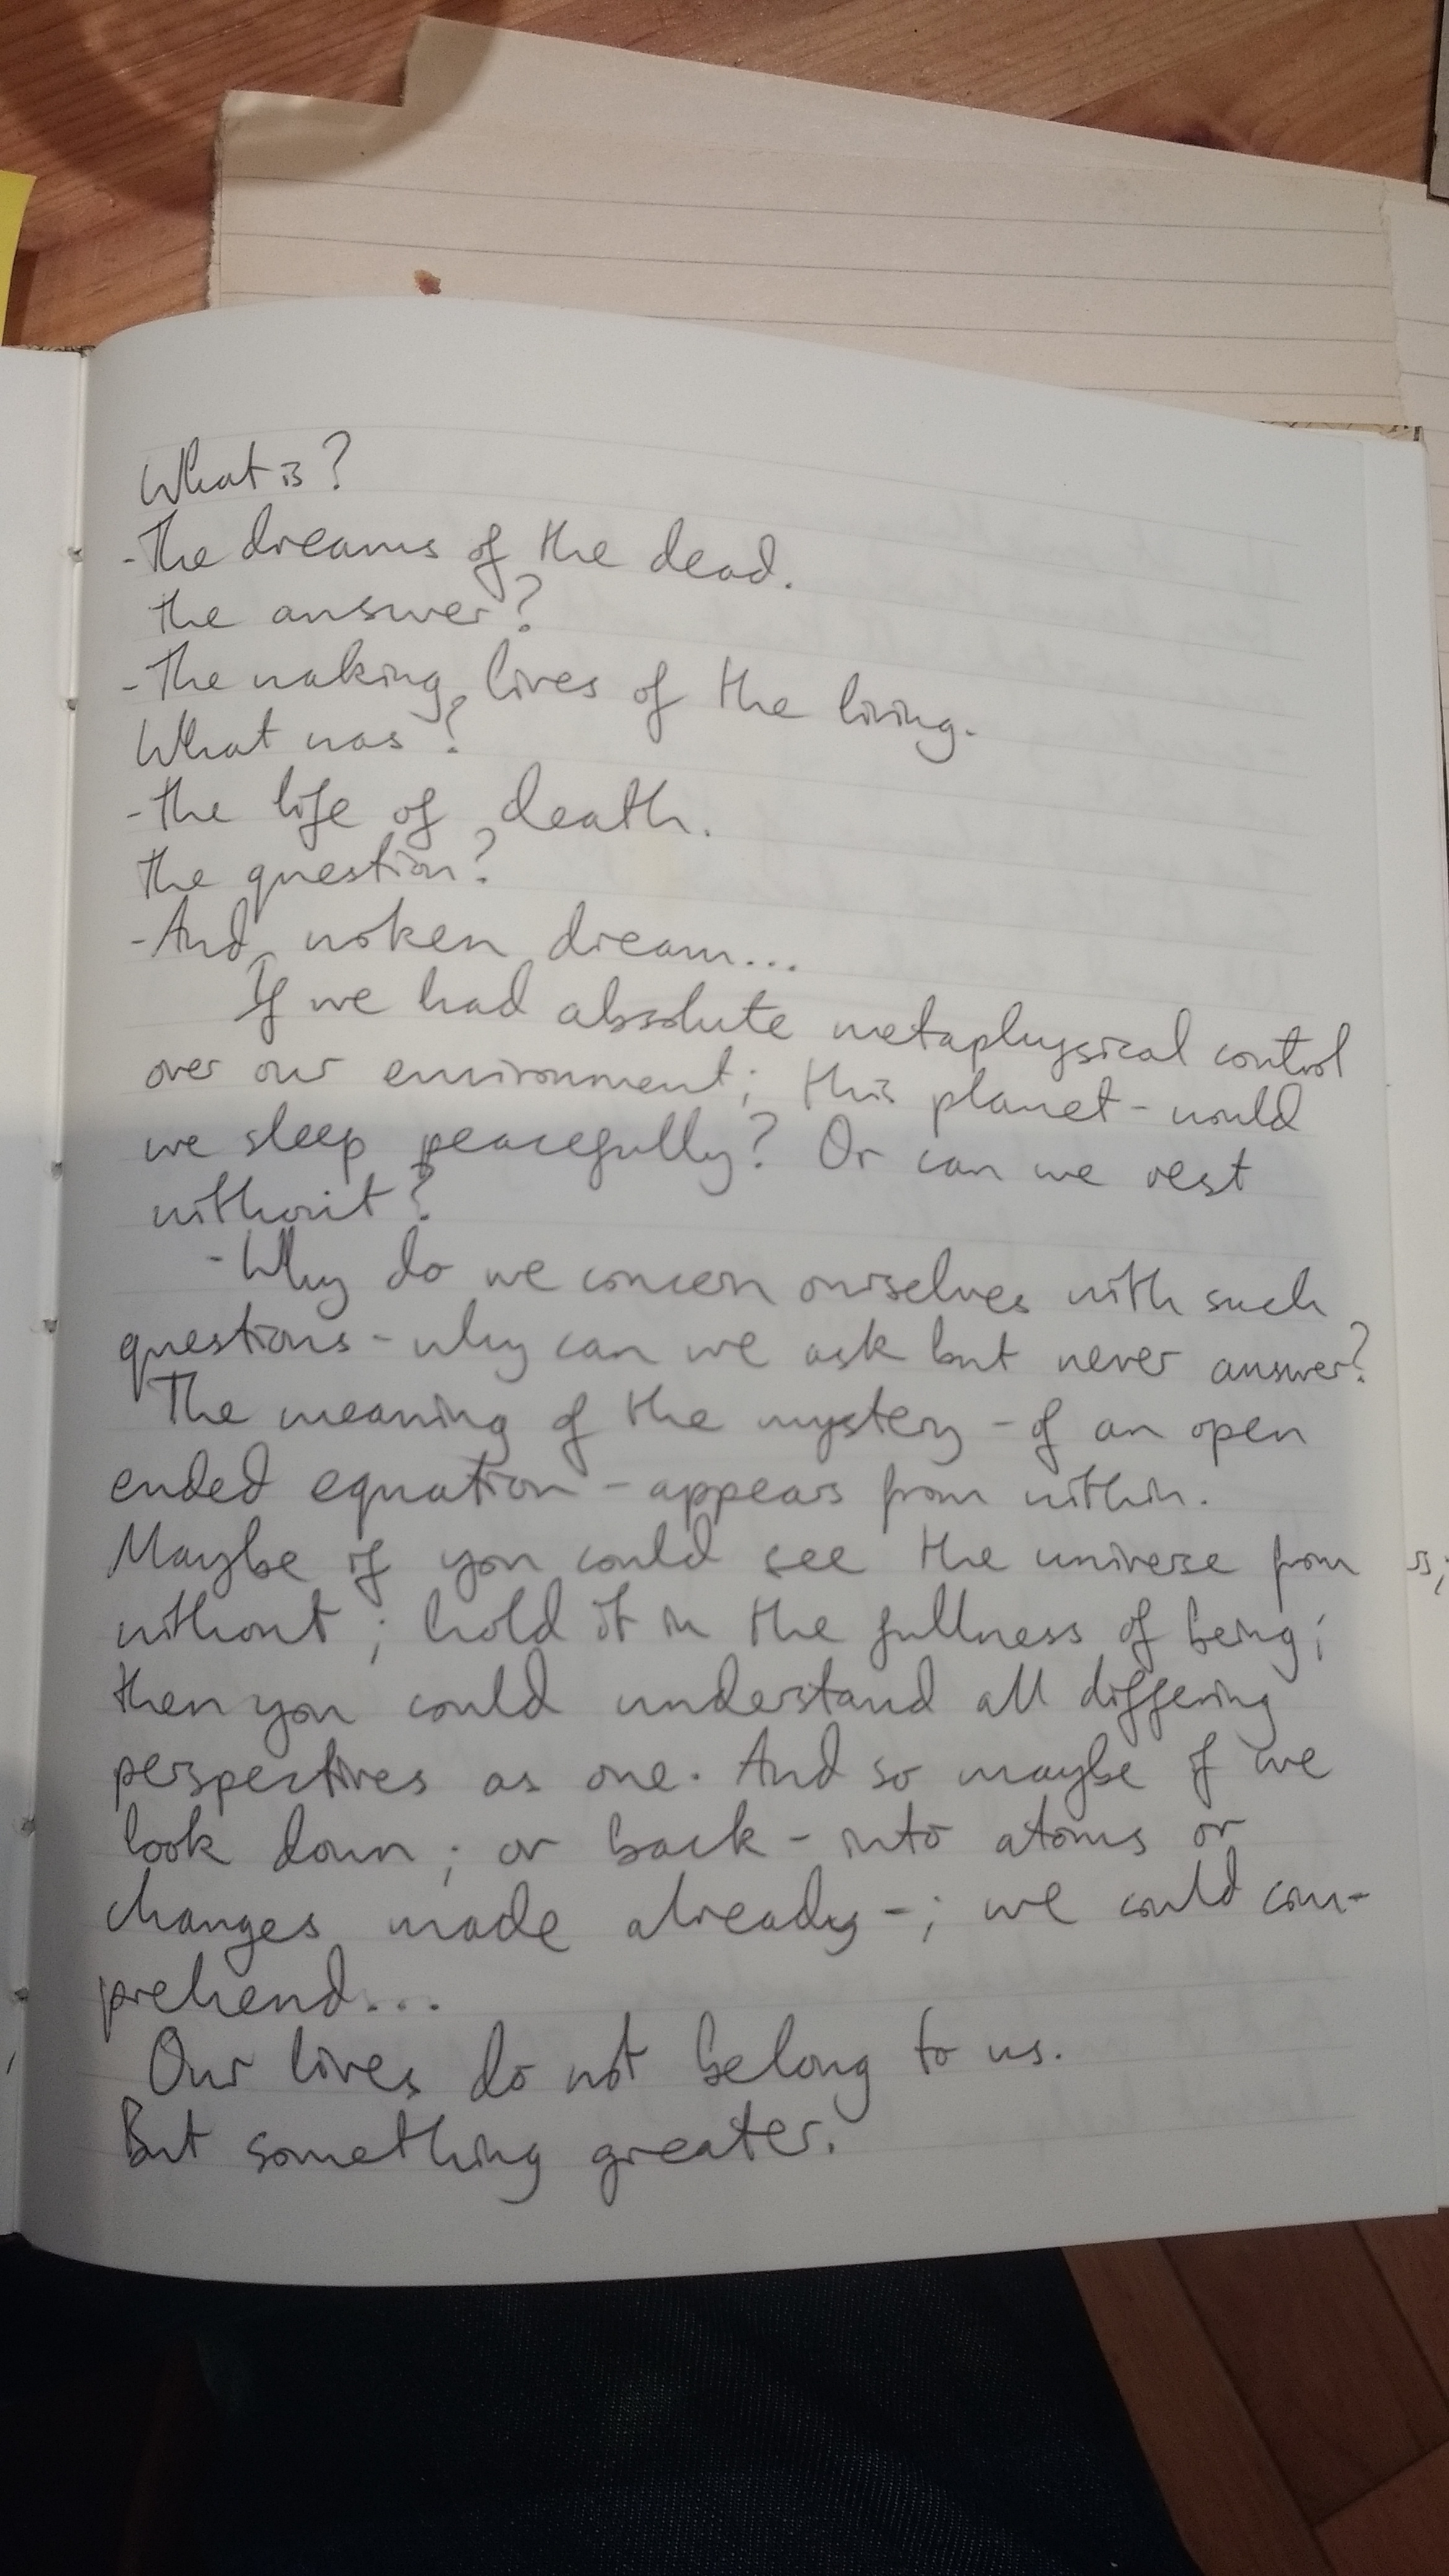 What is?
-The dreams of the dead.
the answer?
-The waking lives of the living.
What was?
-the life of death.
the question?
-And woken dream...
If we had absolute metaphysical control
over our environment; this planet - would
we sleep peacefully? Or can we rest
without?
-Why do we concern ourselves with such
questions - why can we ask but never answer?
The meaning of the mystery - of an open
ended equation - appears from within.
Maybe if you could see the universe from
without; hold it in the fullness of being;
then you could understand all differing
perspectives as one. And so maybe if we
look down; or back - into atoms or
changes made already -; we could com-
prehend...
Our lives do not belong to us.
But something greater.